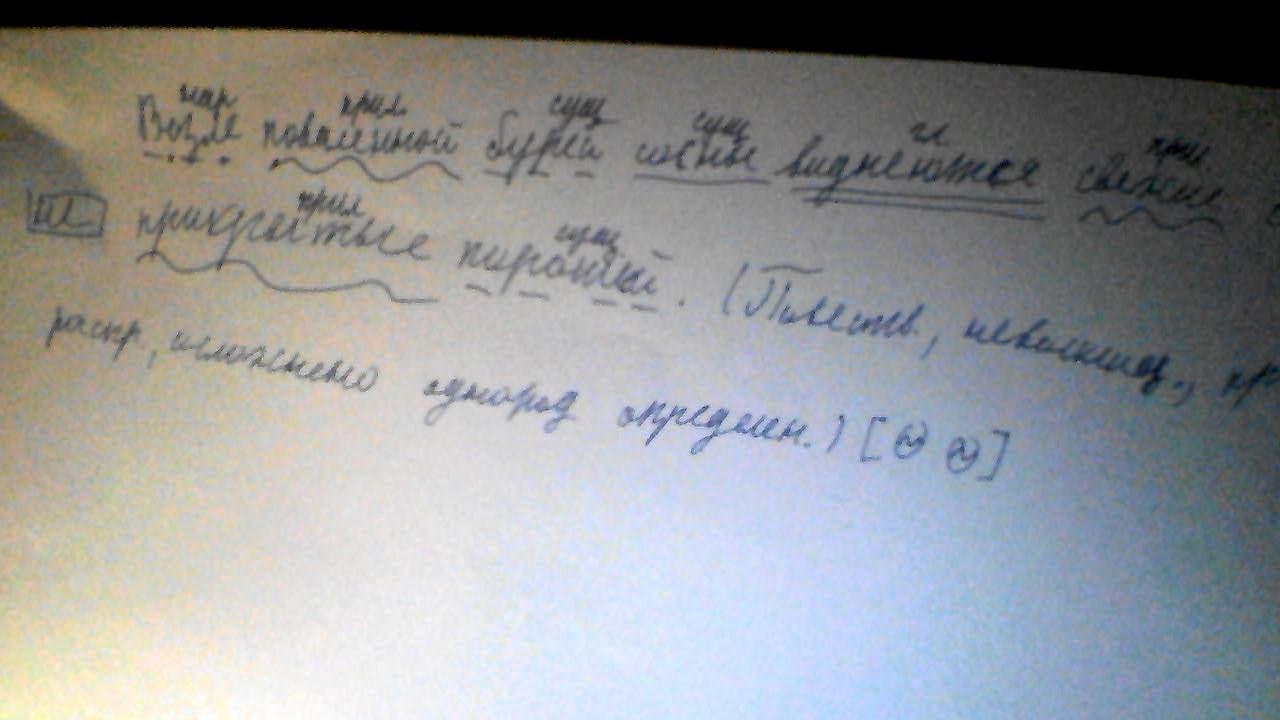 нар прил сущ сущ гл прил
Возле поваленной бурей сосны виднеются свежие
прил сущ
прикрытые порошей. (Повеств., невосклиц., пр
распр, осложнено однород определен.) [